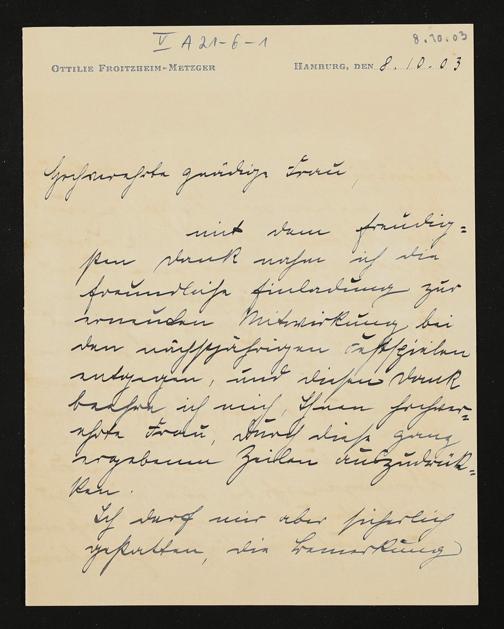 V A 21-6-1
8.10.03
OTTILIE FROITZHEIM-METZGER
HAMBURG, DEN 8.10.03
Hochverehrte gnädige Frau,
mit dem freudig=
sten Dank nahm ich die
freundliche Einladung zur
erneuten Mitwirkung bei
den nächstjährigen Festspielen
entgegen, und diesen Dank
beehre ich mich, Ihnen hochver=
ehrte Frau, durch diese ganz
ergebenen Zeilen auszudrük=
ken.
Ich darf mir aber sicherlich
gestatten, die Bemerkung